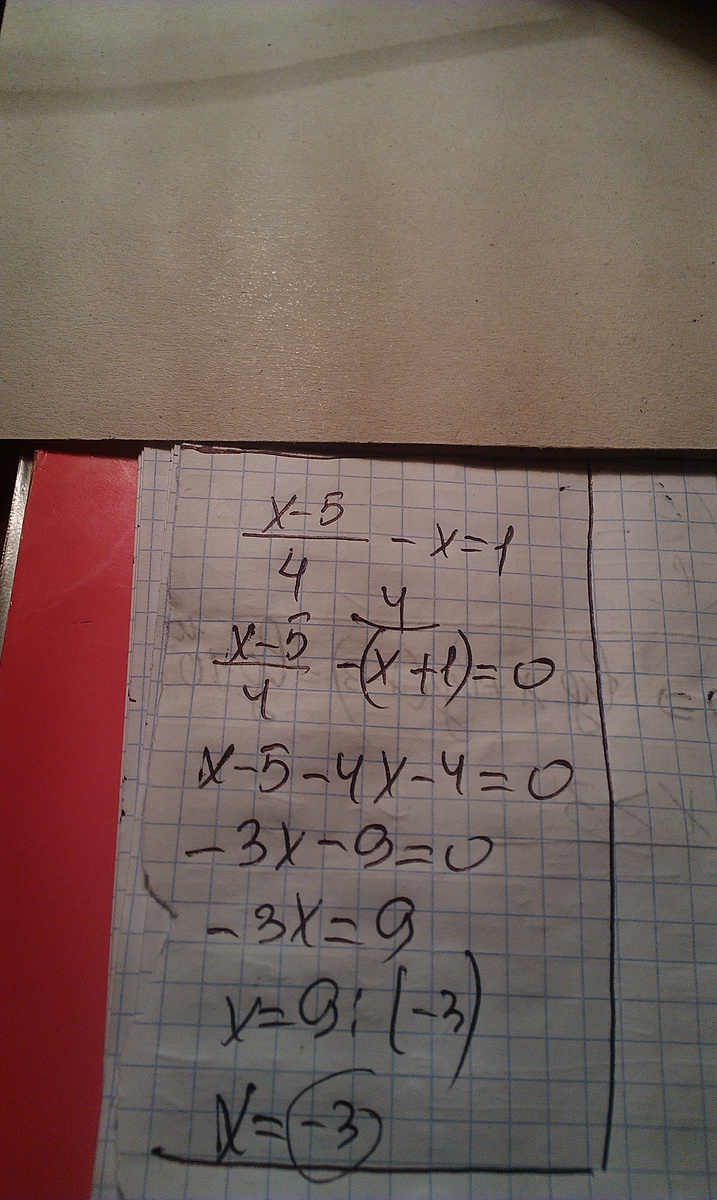 x-5
4
- x=1
4
x-5
4
-(x+1)=0
x-5-4x-4=0
-3x-9=0
-3x=9
x=9:(-3)
x=-3